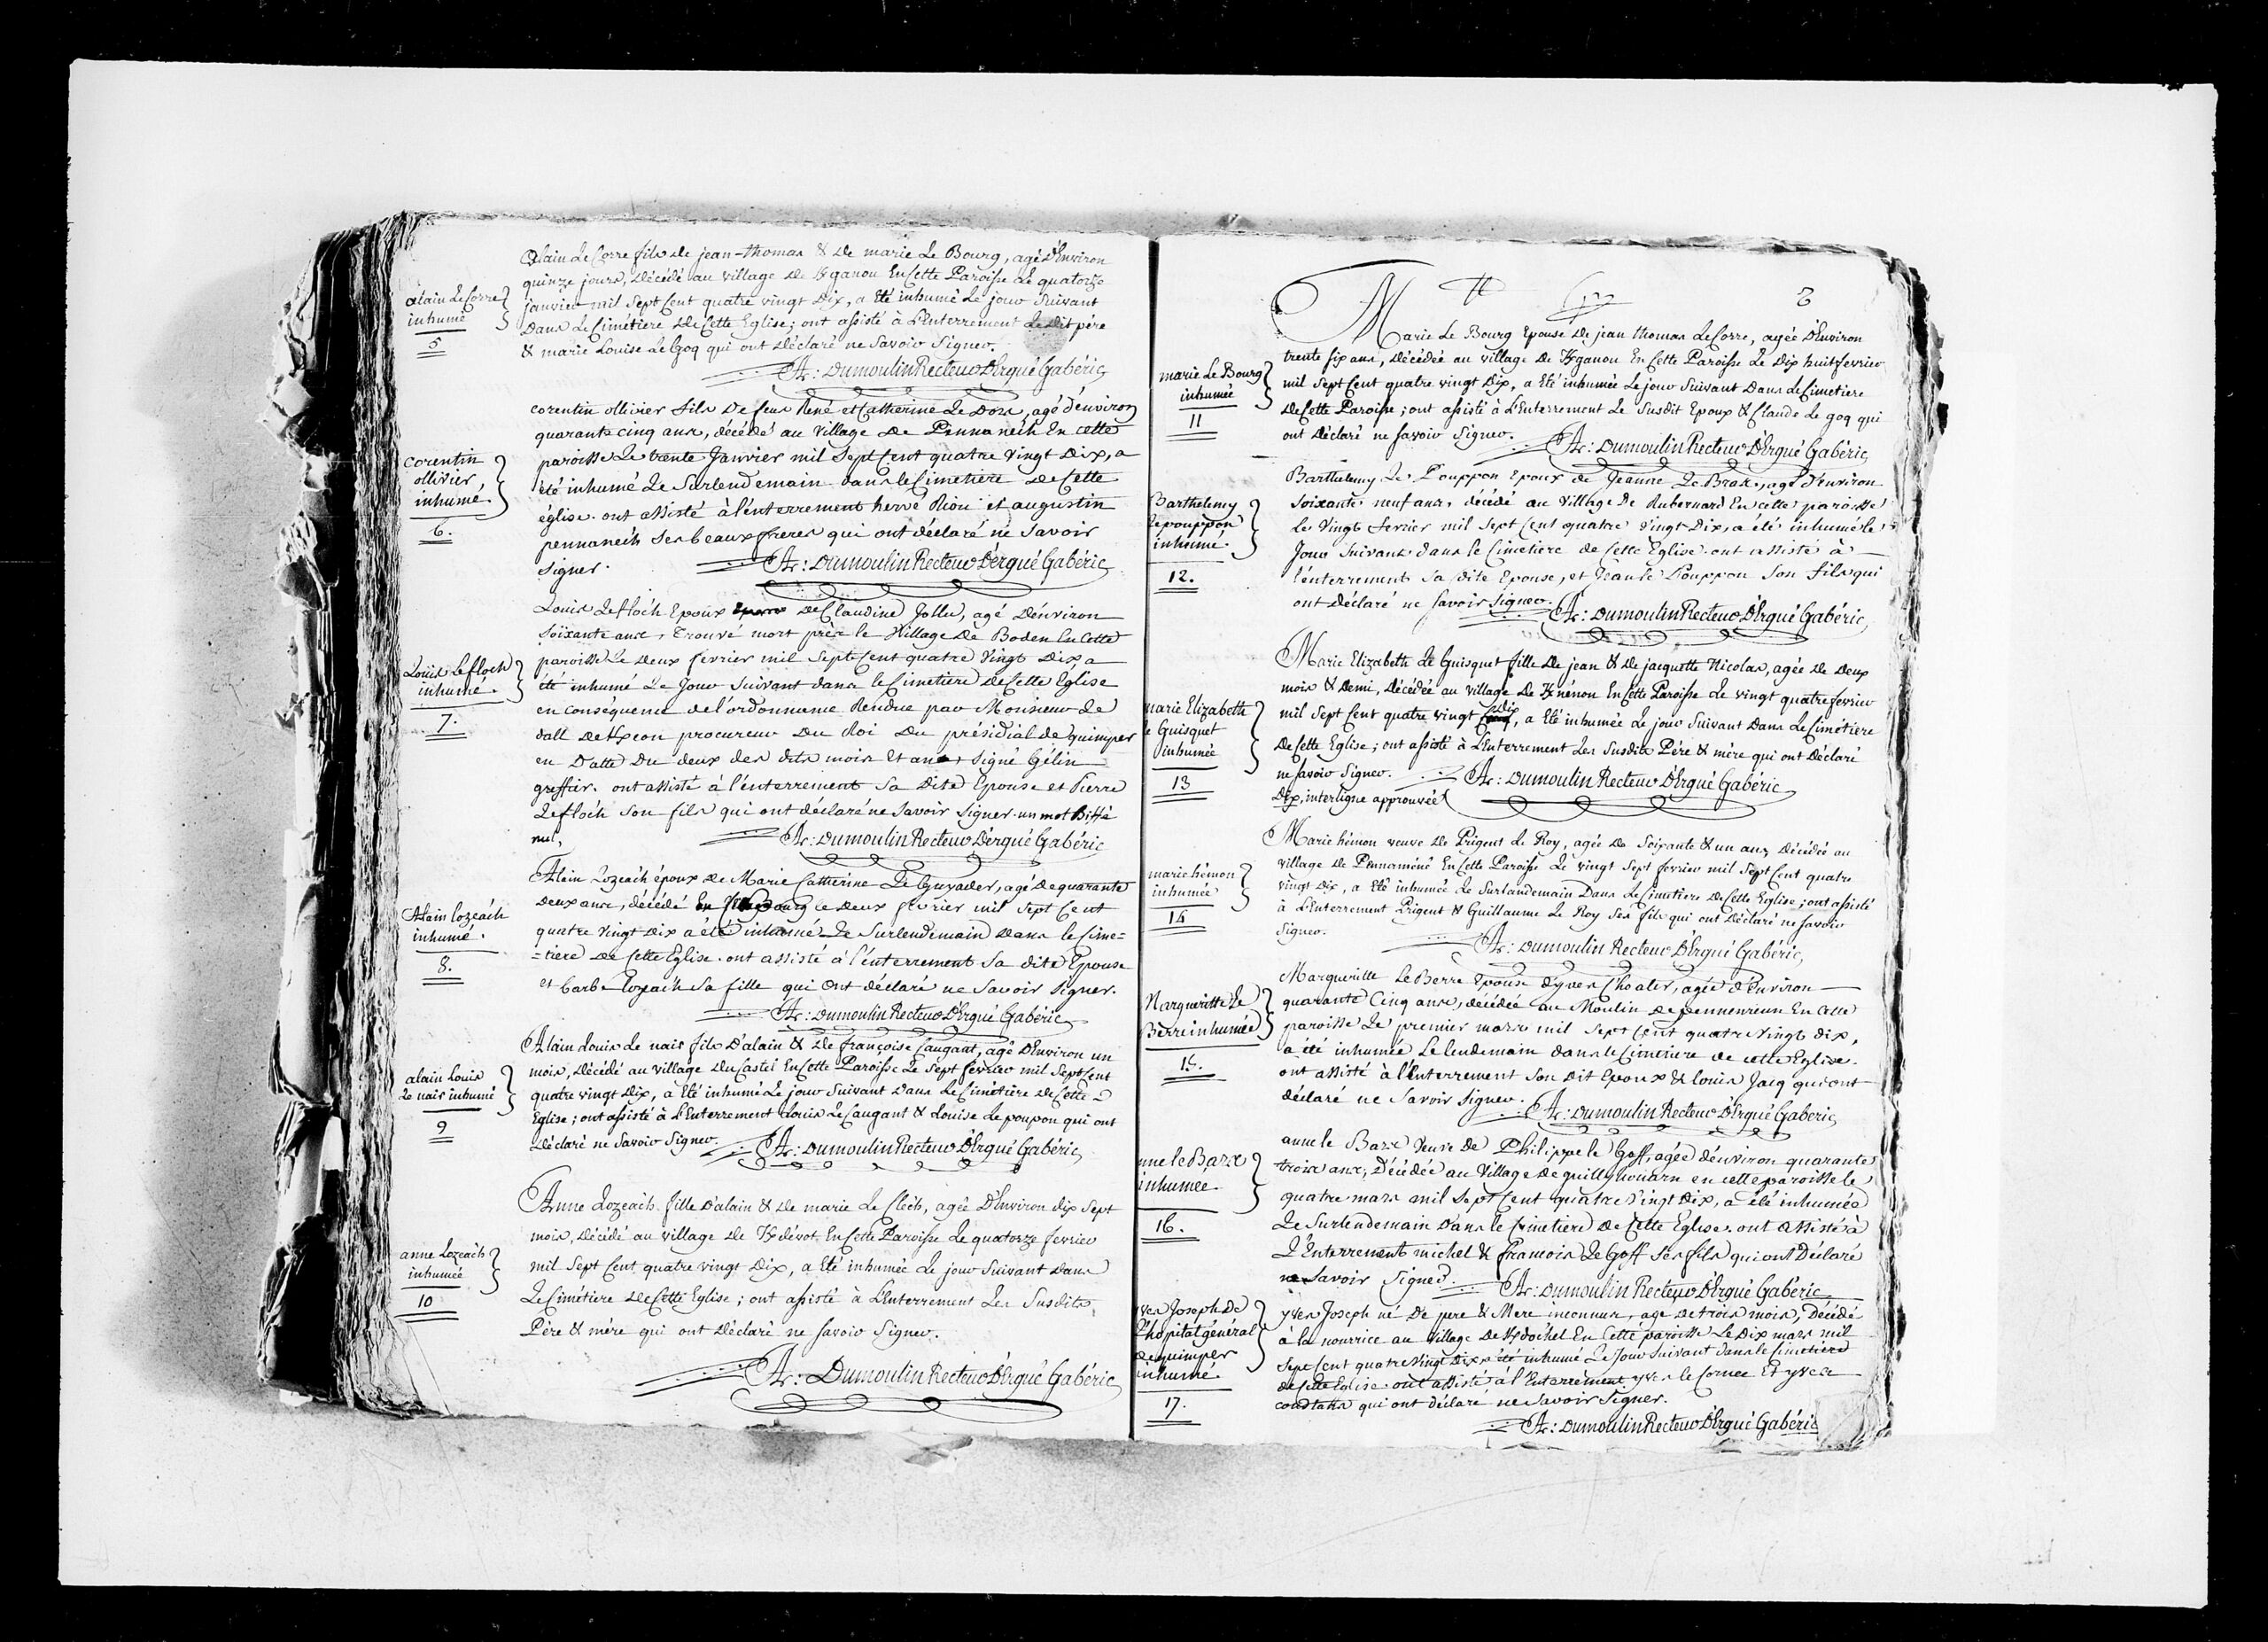 alain Le Corre
inhumé
5
Alain Le Corre fils de jean-thomas & de marie Le Bourg, agé d'Environ
quinze jours, décédé au village de Kganou En Cette Paroisse Le quatorze
janvier mil Sept Cent quatre vingt Dix, a Eté inhumé Le jour Suivant
Dans Le Cimétiere de Cette Eglise; ont assisté à L'Enterrement Le dit pére
& marie Louise Le Goq qui ont déclaré ne Savoir Signer.
At: Dumoulin Recteur D'Ergué Gabéric
Corentin
ollivier
inhumé.
6.
Corentin ollivier fils de feus René et Catherine Le Dore, agé d'environ
quarante cinq ans, décédé au village de Pennanéch En cette
paroisse Le trente Janvier mil Sept Cent quatre vingt Dix, a
été inhumé Le Surlendemain dans le Cimetiere de Cette
église. ont assisté à l'enterrement hervé Riou et augustin
pennanech ses beaux freres qui ont déclaré ne Savoir
Signer.
At: Dumoulin Recteur D'ergué Gabéric
Louis Le floch
inhumé.
7.
Louis Le floch Epoux de Claudine Jollu, agé d'environ
Soixante ans, Trouvé mort près le Village de Boden En Cette
paroisse Le Deux fevrier mil Sept Cent quatre vingt Dix a
été inhumé Le Jour Suivant dans le Cimetiere de Cette Eglise
en conséquence de l'ordonnance Rendue par Monsieur de
dall de Kxeon procureur Du Roi Du présidial de quimper
en Datte Du deux des dits mois Et an, Signé Gélin
greffier. ont assisté à l'enterrement Sa Dite Epouse et Pierre
Le floch Son fils qui ont déclaré ne Savoir Signer. un mot Biffé
nul,
At: Dumoulin Recteur D'ergué Gabéric
Alain Lozeách
inhumé.
8.
Alain Lozeách époux de Marie Catherine Le Guyader, agé de quarante
Deux ans, décédé Le Deux fevrier mil Sept Cent
quatre vingt Dix a été inhumé Le Surlendemain Dans le Cime=
=tiere de Cette Eglise. ont assisté à l'enterrement Sa dite Epouse
et barbe Lozeách Sa fille qui Ont déclaré ne Savoir Signer.
At: Dumoulin Recteur D'Ergué Gabéric
alain Louis
Le nair inhumé
9
Alain Louis Le nair fils D'alain & de françoise Caugant, agé D'Environ un
mois, décédé au village du Castel En Cette Paroisse Le Sept fevrier mil Sept Cent
quatre vingt Dix, a Eté inhumé Le jour Suivant Dans Le Cimétiere de Cette
Eglise; ont assisté à L'Enterrement Louis Le Caugant & Louise Le poupon qui ont
déclaré ne Savoir Signer.
At: Dumoulin Recteur D'Ergué Gabéric
anne Lozeách
inhumée
10
Anne Lozeách fille D'alain & de marie Le Clech, agée D'Environ dix Sept
mois, Décédé au village de Kdévot En Cette Paroisse Le quatorze fevrier
mil Sept Cent quatre vingt Dix, a Eté inhumée Le jour Suivant Dans
Le Cimétiere de Cette Eglise; ont assisté à L'Enterrement Les Susdits
Pére & mére qui ont déclaré ne Savoir Signer.
At: Dumoulin Recteur D'Ergué Gabéric
marie Le Bourg
inhumée
11
Marie Le Bourg Epouse de jean thomas Le Corre, agée D'Environ
trente six ans, Décédée au village de Kganou En Cette Paroisse Le Dix huit fevrier
mil Sept Cent quatre vingt Dix, a Eté inhumée Le jour Suivant Dans Le Cimetiere
de Cette Paroisse; ont assisté à L'Enterrement Le Susdit Epoux & Claude Le goq qui
ont Déclaré ne Savoir Signer.
At: Dumoulin Recteur D'Ergué Gabéric
Barthelemy
Le pouppon
inhumé.
12.
Barthelemy Le Pouppon Epoux de Jeanne Le Bras, agé d'environ
Soixante neuf ans, décédé au village De Rubernard En cette paroisse
Le Vingt fevrier mil Sept Cent quatre Vingt Dix, a été inhumé le
Jour Suivant dans le Cimetiere de Cette Eglise. ont assisté à
l'enterrement Sa dite Epouse, et Jean Le Pouppon Son fils qui
ont déclaré ne Savoir Signer.
At: Dumoulin Recteur D'Ergué Gabéric
marie Elizabeth
le Guisquet
inhumée
13
Marie Elizabeth Le Guisquet fille de jean & de jacquette Nicolas, agée de Deux
mois & Demi, Décédée au village de Knénon En Cette Paroisse Le vingt quatre fevrier
dix
mil Sept Cent quatre vingt, a Eté inhumée Le jour Suivant Dans Le Cimétiere
de Cette Eglise; ont assisté à L'Enterrement Les Susdits Pére & mére qui ont Déclaré
ne Savoir Signer.
Dix, interligne approuvée
At: Dumoulin Recteur D'Ergué Gabéric
marie hémon
inhumée
14
Marie hémon veuve de Prigent Le Roy, agée de Soixante & un ans, Décédée au
village de Pennaméné En Cette Paroisse Le vingt Sept fevrier mil Sept Cent quatre
vingt Dix, a Eté inhumée Le Surlandemain Dans Le Cimetiere de Cette Eglise; ont assisté
à L'Enterrement Prigent & Guillaume Le Roy Ses fils qui ont Déclaré ne Savoir
Signer.
At: Dumoulin Recteur D'Ergué Gabéric
Margueritte Le
Berre inhumée
15.
Margueritte Le Berre Epouse d'yves Choaler, agée d'Environ
quarante Cinq ans, décédée au Moulin de pennenreun En Cette
paroisse Le premier mars mil Sept Cent quatre Vingt Dix,
a été inhumée Le lendemain dans le Cimetiere de cette Eglise.
ont assisté à l'Enterrement Son Dit Epoux & Louis Jacq qui ont
déclaré ne Savoir Signer.
At: Dumoulin Recteur D'Ergué Gabéric
nne le Barx
inhumée
16.
anne le Barx Veuve De Philippe le Goff, agée d'environ quarante
trois ans, Décédée au Village de quillyhouarn en cette paroisse le
quatre mars mil Sept Cent quatre Vingt Dix, a été inhumée
Le Surlendemain Dans le Cimetiere de Cette Eglise. ont assisté à
L'Enterrement michel & francois Le Goff Ses fils qui ont Déclaré
ne Savoir Signer.
At: Dumoulin Recteur D'Ergué Gabéric
yves Joseph De
l'hopital général
de quimper
inhumé.
17.
yves Joseph né De pere & Mere inconnus, agé de trois mois, Décédé
à la nourrice au Village de Kdoéhel En Cette paroisse Le Dix mars mil
Sept Cent quatre Vingt Dix a été inhumé Le Jour Suivant dans le Cimetiere
de Cette Eglise. ont assisté à l'Enterrement yves le Cornec Et yves
coustans qui ont déclaré ne Savoir Signer.
At: Dumoulin Recteur D'Ergué Gabéric